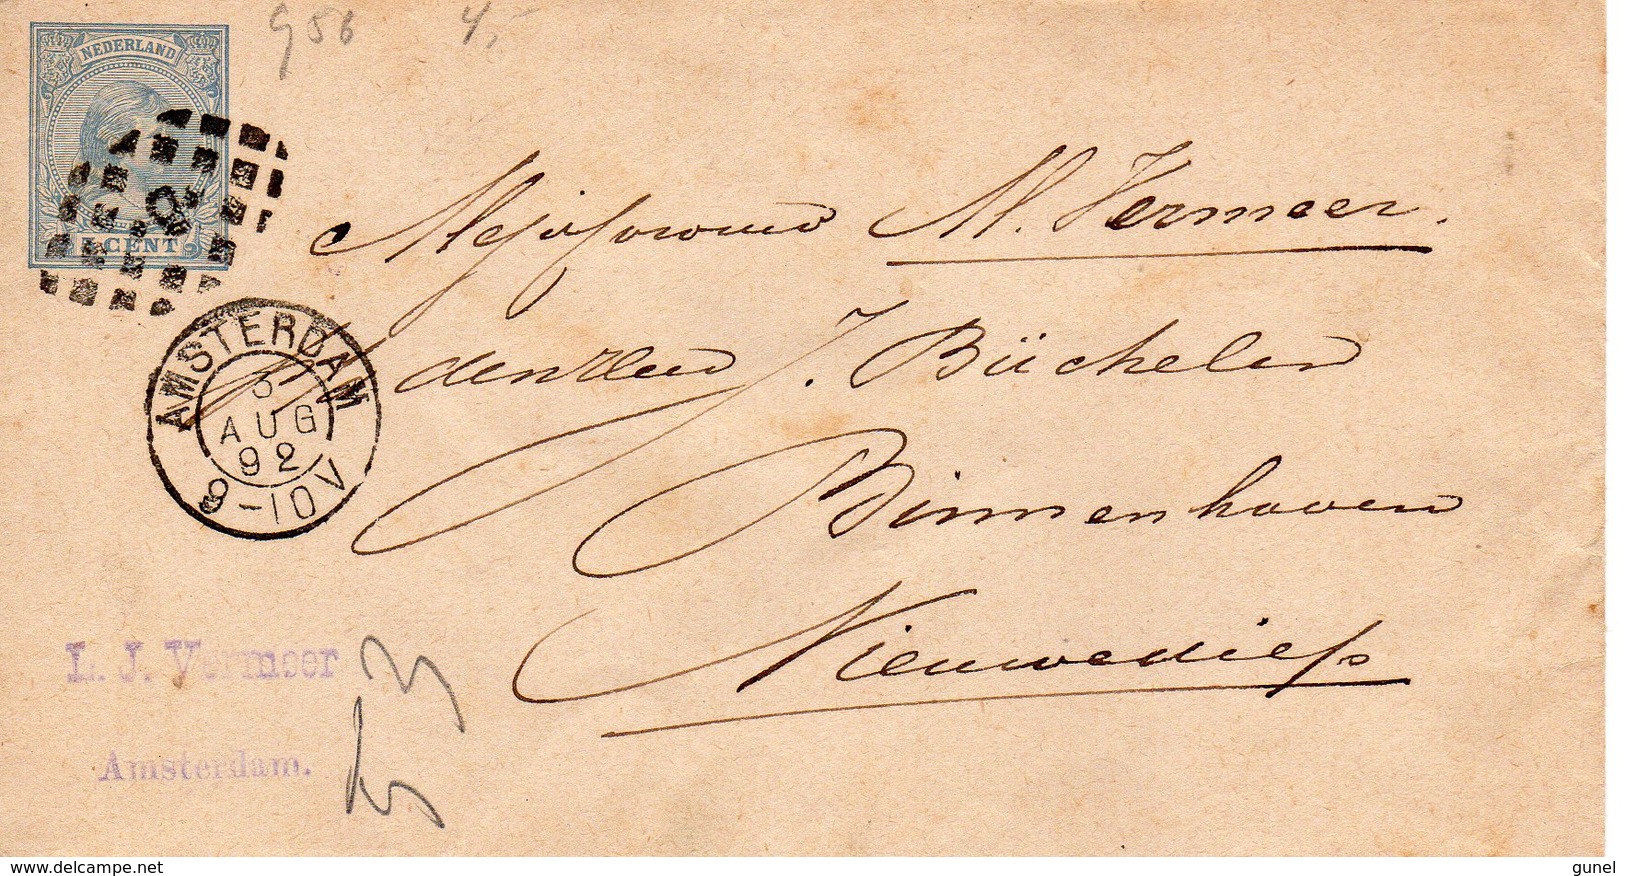 g 5 b 4,-
NEDERLAND
5 CENT
AMSTERDAM
5
AUG
92
9-10V
Mejufvrouw M. Vermeer.
p/a den Heer J. Büchelen
Binnenhaven
Nieuwediep
L. J. Vermeer
Amsterdam.
www.delcampe.net
gunel